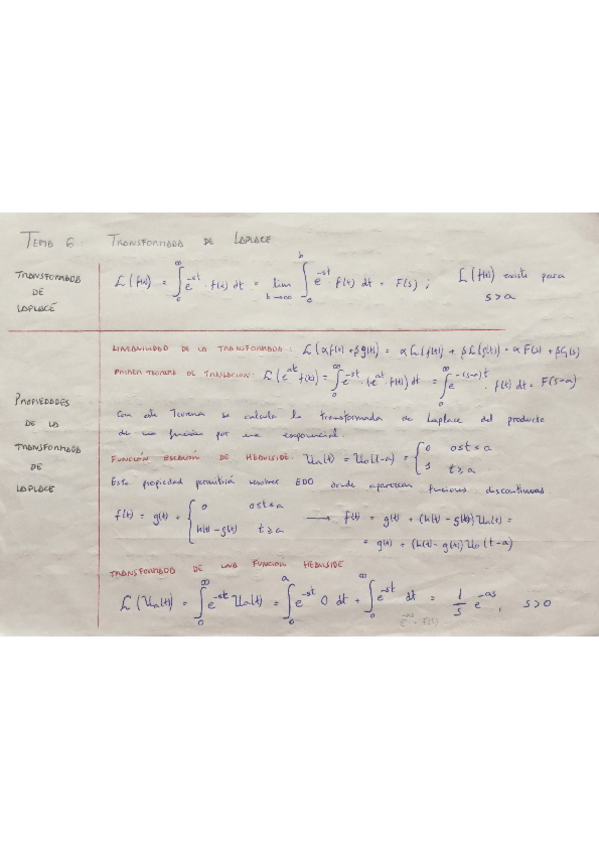 TEMA 6: TRANSFORMADA DE LAPLACE
TRANSFORMADA DE LAPLACE
L(f(t)) = ∫₀^∞ e^{-st} · f(t) dt = lim_{b→∞} ∫₀^b e^{-st} · f(t) dt = F(s) ; L(f(t)) existe para s>a
PROPIEDADES DE LA TRANSFORMADA DE LAPLACE
LINEALIDAD DE LA TRANSFORMADA: L(αf(t)+βg(t)) = αL(f(t)) + βL(g(t)) = αF(s) + βG(s)
PRIMER TEOREMA DE TRASLACION: L(e^{at} f(t)) = ∫₀^∞ e^{-st} · (e^{at} · f(t)) dt = ∫₀^∞ e^{-(s-a)t} · f(t) dt = F(s-a)
Con este Teorema se calcula la transformada de Laplace del producto
de una función por una exponencial.
FUNCIÓN ESCALÓN DE HEAVISIDE: Uₐ(t) = U₀(t-a) = { 0 0≤t<a
1 t≥a
Esta propiedad permitirá resolver EDO donde aparezcan funciones discontinuas
f(t) = g(t) + { 0 0≤t<a
h(t)-g(t) t≥a
→ f(t) = g(t) + (h(t)-g(t)) Uₐ(t) =
= g(t) + (h(t)-g(t)) U₀(t-a)
TRANSFORMADA DE UNA FUNCION HEAVISIDE
L(Uₐ(t)) = ∫₀^∞ e^{-st} Uₐ(t) = ∫₀^a e^{-st} 0 dt + ∫ₐ^∞ e^{-st} dt = 1/s e^{-as}, s>0
e^{-as} · F(s)